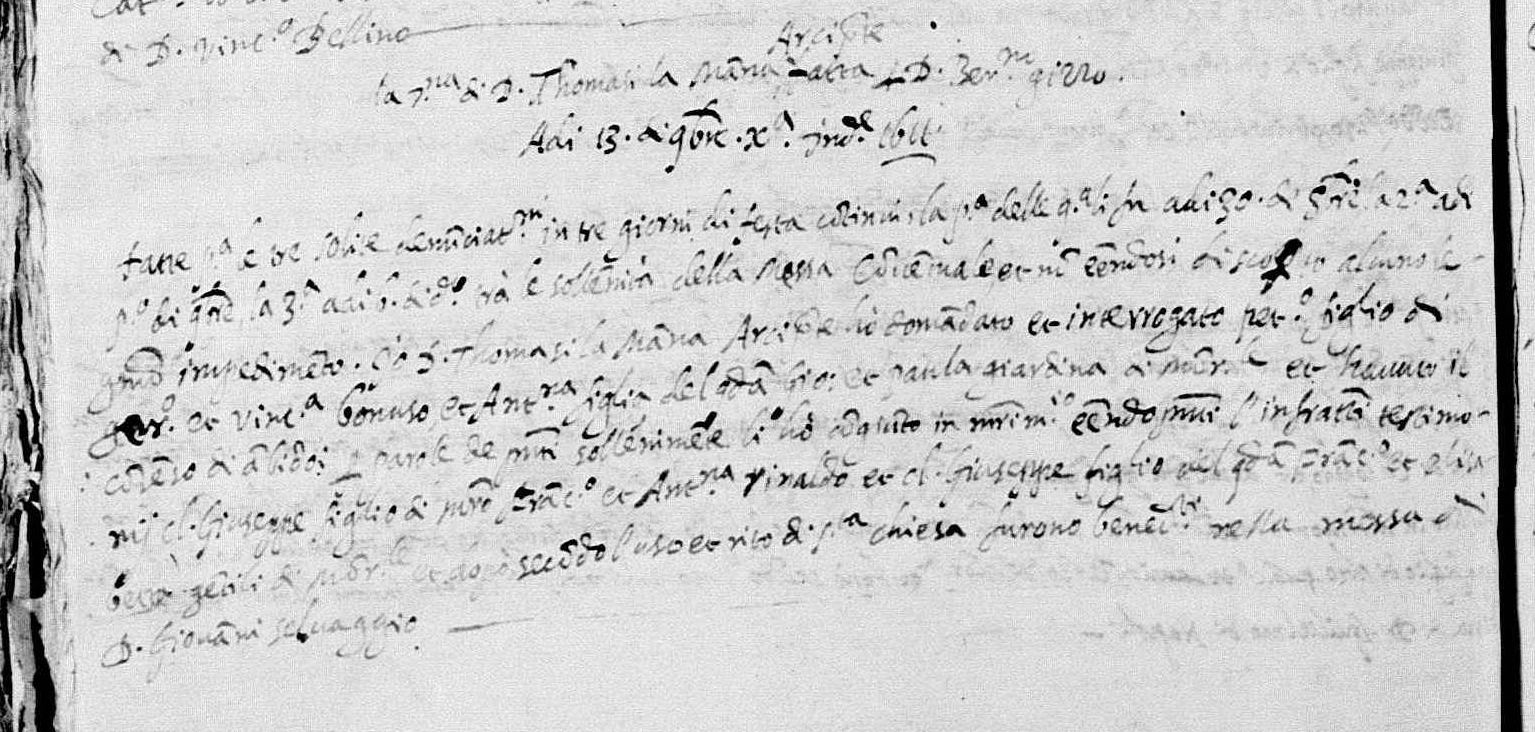 di D. Vinc.o Bellino
Arcip̃te
la p.ma di D. Thomasi la Mãna fatta p D. Ber.no gizzo.
Adi 13. di 9bre. X.a Ind.e 1611
fatte p.a le tre solite denũciat.ni in tre giorni di festa cõtinui, la p.a delle q.ali fu adi 30. di 8bre la 2.a adi
p.o di 9bre, la 3.a adi 6. di d.o trà le sollẽnità della Messa Cõvẽtuale et nõ eẽndosi discoperto alcuno le-
gmõ impedimẽto. Io D. Thomasi la Mãna Arcip̃te hò domãdato et interrogato piet.o figlio di
ger.o et Vinc.a bonuso et Ant.na figlia del qdã Gio: et paula giardina di Mõr.le et havuto il
cõsenso di ãbidoi p parole de pñti sollẽnimẽte li hò cõgiũto in mrim.io eẽndo pñti l'infratti testimo-
nij cl. Giuseppe figlio di mrõ Frãc.o et Ant.na rinaldo et cl. Giuseppe figlio del qdã Frãc.o et elisa-
betta gẽtili di Mõr.le et dopò secõdo l'uso et rito di s.ta chiesa furono bened.ti nella messa di
D. Giovãni selvaggio